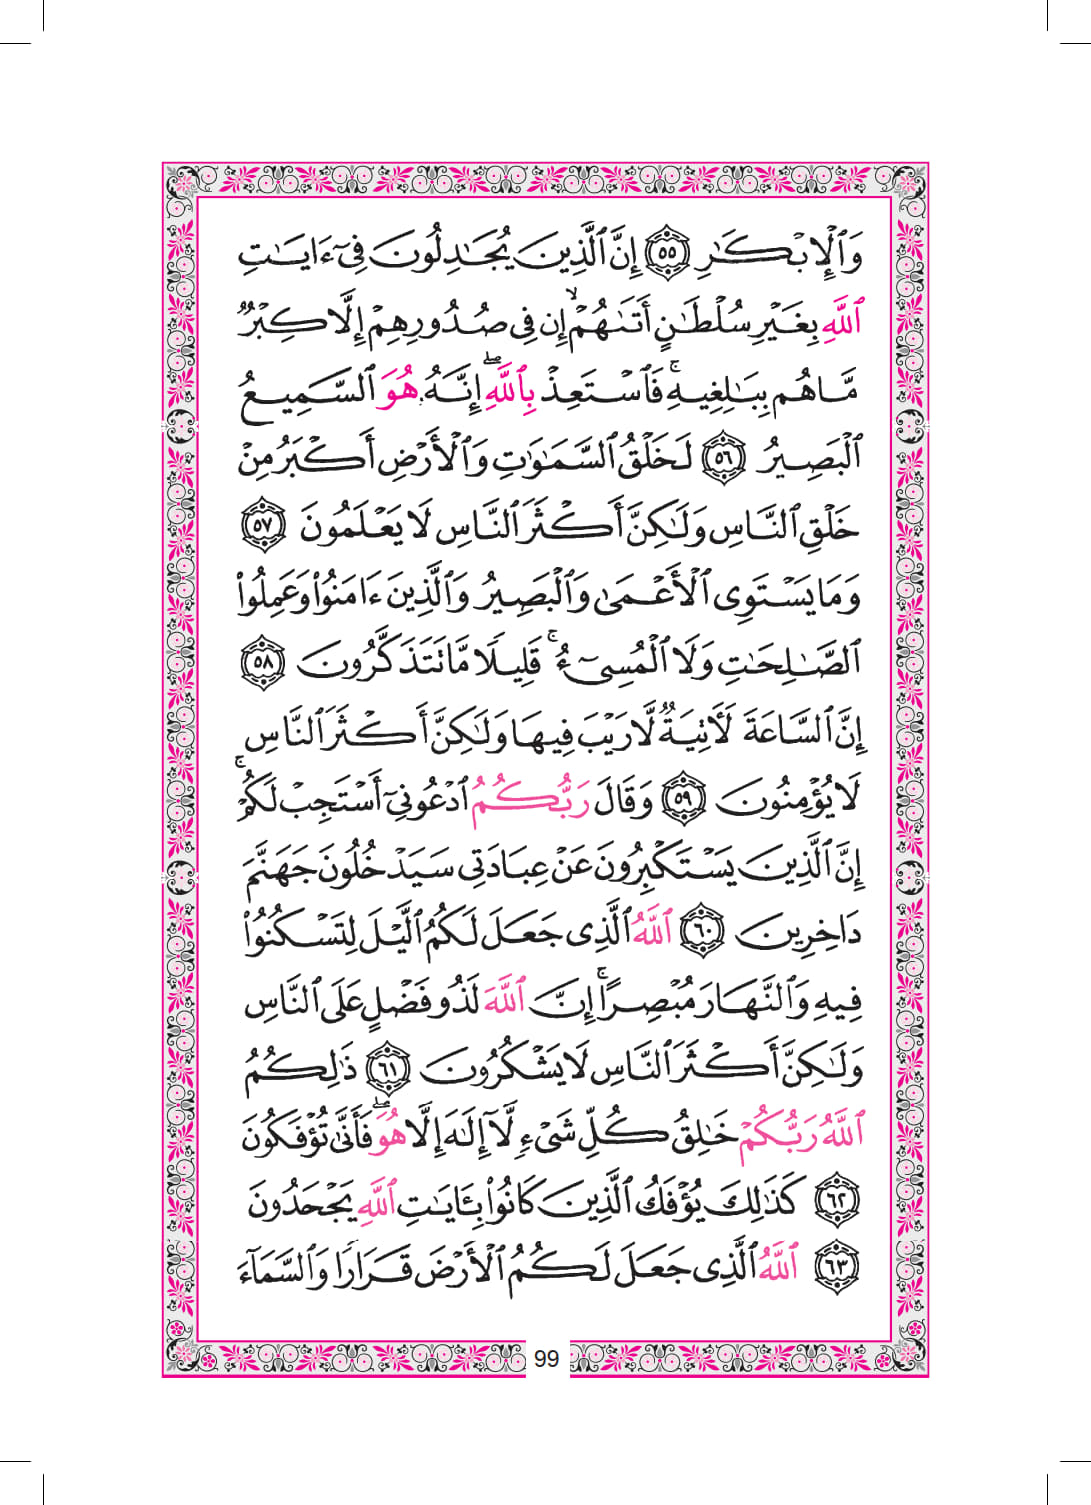 وَٱلْإِبْكَٰرِ ٥٥ إِنَّ ٱلَّذِينَ يُجَٰدِلُونَ فِىٓ ءَايَٰتِ
ٱللَّهِ بِغَيْرِ سُلْطَٰنٍ أَتَىٰهُمْ ۙ إِن فِى صُدُورِهِمْ إِلَّا كِبْرٌ
مَّا هُم بِبَٰلِغِيهِ ۚ فَٱسْتَعِذْ بِٱللَّهِ ۖ إِنَّهُۥ هُوَ ٱلسَّمِيعُ
ٱلْبَصِيرُ ٥٦ لَخَلْقُ ٱلسَّمَٰوَٰتِ وَٱلْأَرْضِ أَكْبَرُ مِنْ
خَلْقِ ٱلنَّاسِ وَلَٰكِنَّ أَكْثَرَ ٱلنَّاسِ لَا يَعْلَمُونَ ٥٧
وَمَا يَسْتَوِى ٱلْأَعْمَىٰ وَٱلْبَصِيرُ وَٱلَّذِينَ ءَامَنُوا۟ وَعَمِلُوا۟
ٱلصَّٰلِحَٰتِ وَلَا ٱلْمُسِىٓءُ ۚ قَلِيلًا مَّا تَتَذَكَّرُونَ ٥٨
إِنَّ ٱلسَّاعَةَ لَـَٔاتِيَةٌ لَّا رَيْبَ فِيهَا وَلَٰكِنَّ أَكْثَرَ ٱلنَّاسِ
لَا يُؤْمِنُونَ ٥٩ وَقَالَ رَبُّكُمُ ٱدْعُونِىٓ أَسْتَجِبْ لَكُمْ ۚ
إِنَّ ٱلَّذِينَ يَسْتَكْبِرُونَ عَنْ عِبَادَتِى سَيَدْخُلُونَ جَهَنَّمَ
دَاخِرِينَ ٦٠ ٱللَّهُ ٱلَّذِى جَعَلَ لَكُمُ ٱلَّيْلَ لِتَسْكُنُوا۟
فِيهِ وَٱلنَّهَارَ مُبْصِرًا ۚ إِنَّ ٱللَّهَ لَذُو فَضْلٍ عَلَى ٱلنَّاسِ
وَلَٰكِنَّ أَكْثَرَ ٱلنَّاسِ لَا يَشْكُرُونَ ٦١ ذَٰلِكُمُ
ٱللَّهُ رَبُّكُمْ خَٰلِقُ كُلِّ شَىْءٍ لَّآ إِلَٰهَ إِلَّا هُوَ ۖ فَأَنَّىٰ تُؤْفَكُونَ
٦٢ كَذَٰلِكَ يُؤْفَكُ ٱلَّذِينَ كَانُوا۟ بِـَٔايَٰتِ ٱللَّهِ يَجْحَدُونَ
٦٣ ٱللَّهُ ٱلَّذِى جَعَلَ لَكُمُ ٱلْأَرْضَ قَرَارًا وَٱلسَّمَآءَ
99